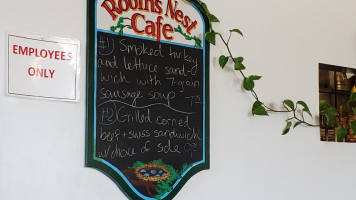 Robins Nest
Cafe
EMPLOYEES
ONLY
#1) Smoked turkey
and lettuce sand-
wich with 7-grain
sausage soup 7.95
#2) Grilled corned
beef + swiss sandwich
w/choice of side